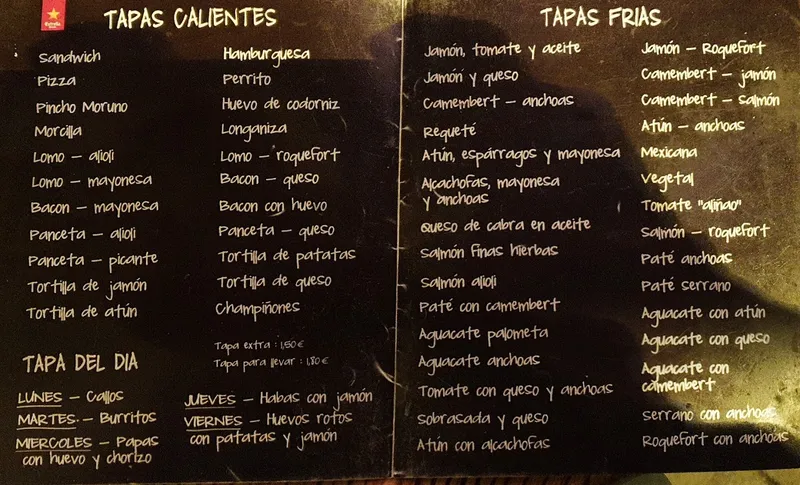 Estrella
TAPAS CALIENTES
Sandwich
Pizza
Pincho Moruno
Morcilla
Lomo – alioli
Lomo – mayonesa
Bacon – mayonesa
Panceta – alioli
Panceta – picante
Tortilla de jamón
Tortilla de atún
Hamburguesa
Perrito
Huevo de codorniz
Longaniza
Lomo – roquefort
Bacon – queso
Bacon con huevo
Panceta – queso
Tortilla de patatas
Tortilla de queso
Champiñones
Tapa extra : 1,50 €
Tapa para llevar : 1,80 €
TAPA DEL DIA
LUNES – Callos
MARTES – Burritos
MIERCOLES – Papas
con huevo y chorizo
JUEVES – Habas con jamón
VIERNES – Huevos rotos
con patatas y jamón
TAPAS FRIAS
Jamón, tomate y aceite
Jamón y queso
Camembert – anchoas
Requeté
Atún, espárragos y mayonesa
Alcachofas, mayonesa
y anchoas
Queso de cabra en aceite
Salmón finas hierbas
Salmón alioli
Paté con camembert
Aguacate palometa
Aguacate anchoas
Tomate con queso y anchoas
Sobrasada y queso
Atún con alcachofas
Jamón – Roquefort
Camembert – jamón
Camembert – salmón
Atún – anchoas
Mexicana
Vegetal
Tomate "aliñao"
Salmón – roquefort
Paté anchoas
Paté serrano
Aguacate con atún
Aguacate con queso
Aguacate con
camembert
Serrano con anchoas
Roquefort con anchoas